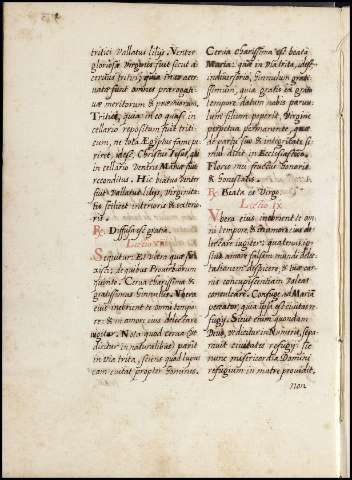 tritici Vallatus lilijs. Venter
gloriosæ Virginis fuit sicut a-
cervus tritici, quia in eo ater-
natæ sunt omnes prærogati-
væ meritorum & præmiorum.
Tritici, quia in eo quasi in
cellario repositum fuit triti-
cum, ne tota Ægyptus fame pe-
riret, idest, Christus Jesus, qui
in cellario Ventris Mariæ fuit
reconditus. Hic beatus Venter
fuit Vallatus lilijs, Virginita-
tis scilicet interioris & exteri-
oris.
R. Diffusa est gratia.
Lectio
Sequitur. Et Vbera quæ sunt
de quibus Proverbiorum
quinto. Cerva charissima &
gratissimus hinnulus. Vbera
eius inebrient te omni tempo-
re: & in amore eius delectare
iugiter. Nota quod cerva (ut
dicitur in naturalibus) parit
in via trita, sciens quod lupus
eam evitat propter homines.
Cerva charissima est beata
Maria: quæ in via trita, idest
in diversorio, hinnulum grati-
ssimum, quia gratis & in grato
tempore datum nobis parvu-
lum filium peperit, Virgine
perpetua permanente, quæ
de partu suo & integritate si-
mul dicit in Ecclesiastico.
Flores mei fructus honoris
& honestatis.
R. Beata es Virgo.
Lectio IX
Vbera eius inebrient te om-
ni tempore, & in amore eius de-
lectare iugiter: quatenus ip-
sius amore falsam mundi dele-
ctationem despicere & tuæ car-
nis concupiscentiam valeas
conculcare. Confuge ad Mariam
peccator, quia ipsa est civitas re-
fugij. Sicut enim quondam
Deus, ut dicitur in Numeris, sepa-
ravit civitates refugij: sic
nunc misericordia Domini
refugium in matre providit,
non